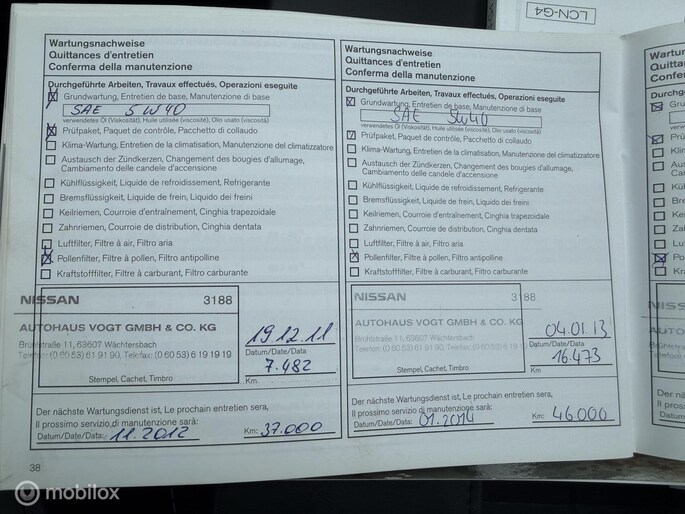 LCN-G4
Wartungsnachweise
Quittances d'entretien
Conferma della manutenzione
Durchgeführte Arbeiten, Travaux effectués, Operazioni eseguite
Grundwartung, Entretien de base, Manutenzione di base
SAE 5W40
verwendetes Öl (Viskosität), Huile utilisée (viscosité), Olio usato (viscosità)
Prüfpaket, Paquet de contrôle, Pacchetto di collaudo
Klima-Wartung, Entretien de la climatisation, Manutenzione del climatizzatore
Austausch der Zündkerzen, Changement des bougies d'allumage,
Cambiamento delle candele d'accensione
Kühlflüssigkeit, Liquide de refroidissement, Refrigerante
Bremsflüssigkeit, Liquide de frein, Liquido dei freini
Keilriemen, Courroie d'entraînement, Cinghia trapezoidale
Zahnriemen, Courroie de distribution, Cinghia dentata
Luftfilter, Filtre à air, Filtro aria
Pollenfilter, Filtre à pollen, Filtro antipolline
Kraftstofffilter, Filtre à carburant, Filtro carburante
NISSAN 3188
AUTOHAUS VOGT GMBH & CO. KG
Brühlstraße 11, 63607 Wächtersbach
Telefon: (0 60 53) 61 91 90, Telefax: (0 60 53) 6 19 19 19
19.12.11
Datum/Date/Data
7.482
Km
Stempel, Cachet, Timbro
Der nächste Wartungsdienst ist, Le prochain entretien sera,
Il prossimo servizio di manutenzione sarà:
Datum/Date/Data: 11.2012 Km: 37.000
38
Wartungsnachweise
Quittances d'entretien
Conferma della manutenzione
Durchgeführte Arbeiten, Travaux effectués, Operazioni eseguite
Grundwartung, Entretien de base, Manutenzione di base
SAE 5W40
verwendetes Öl (Viskosität), Huile utilisée (viscosité), Olio usato (viscosità)
Prüfpaket, Paquet de contrôle, Pacchetto di collaudo
Klima-Wartung, Entretien de la climatisation, Manutenzione del climatizzatore
Austausch der Zündkerzen, Changement des bougies d'allumage,
Cambiamento delle candele d'accensione
Kühlflüssigkeit, Liquide de refroidissement, Refrigerante
Bremsflüssigkeit, Liquide de frein, Liquido dei freini
Keilriemen, Courroie d'entraînement, Cinghia trapezoidale
Zahnriemen, Courroie de distribution, Cinghia dentata
Luftfilter, Filtre à air, Filtro aria
Pollenfilter, Filtre à pollen, Filtro antipolline
Kraftstofffilter, Filtre à carburant, Filtro carburante
NISSAN 3188
AUTOHAUS VOGT GMBH & CO. KG
Brühlstraße 11, 63607 Wächtersbach
Telefon: (0 60 53) 61 91 90, Telefax: (0 60 53) 6 19 19 19
04.01.13
Datum/Date/Data
16.473
Km
Stempel, Cachet, Timbro
Der nächste Wartungsdienst ist, Le prochain entretien sera,
Il prossimo servizio di manutenzione sarà:
Datum/Date/Data: 01.2014 Km: 46.000
mobilox